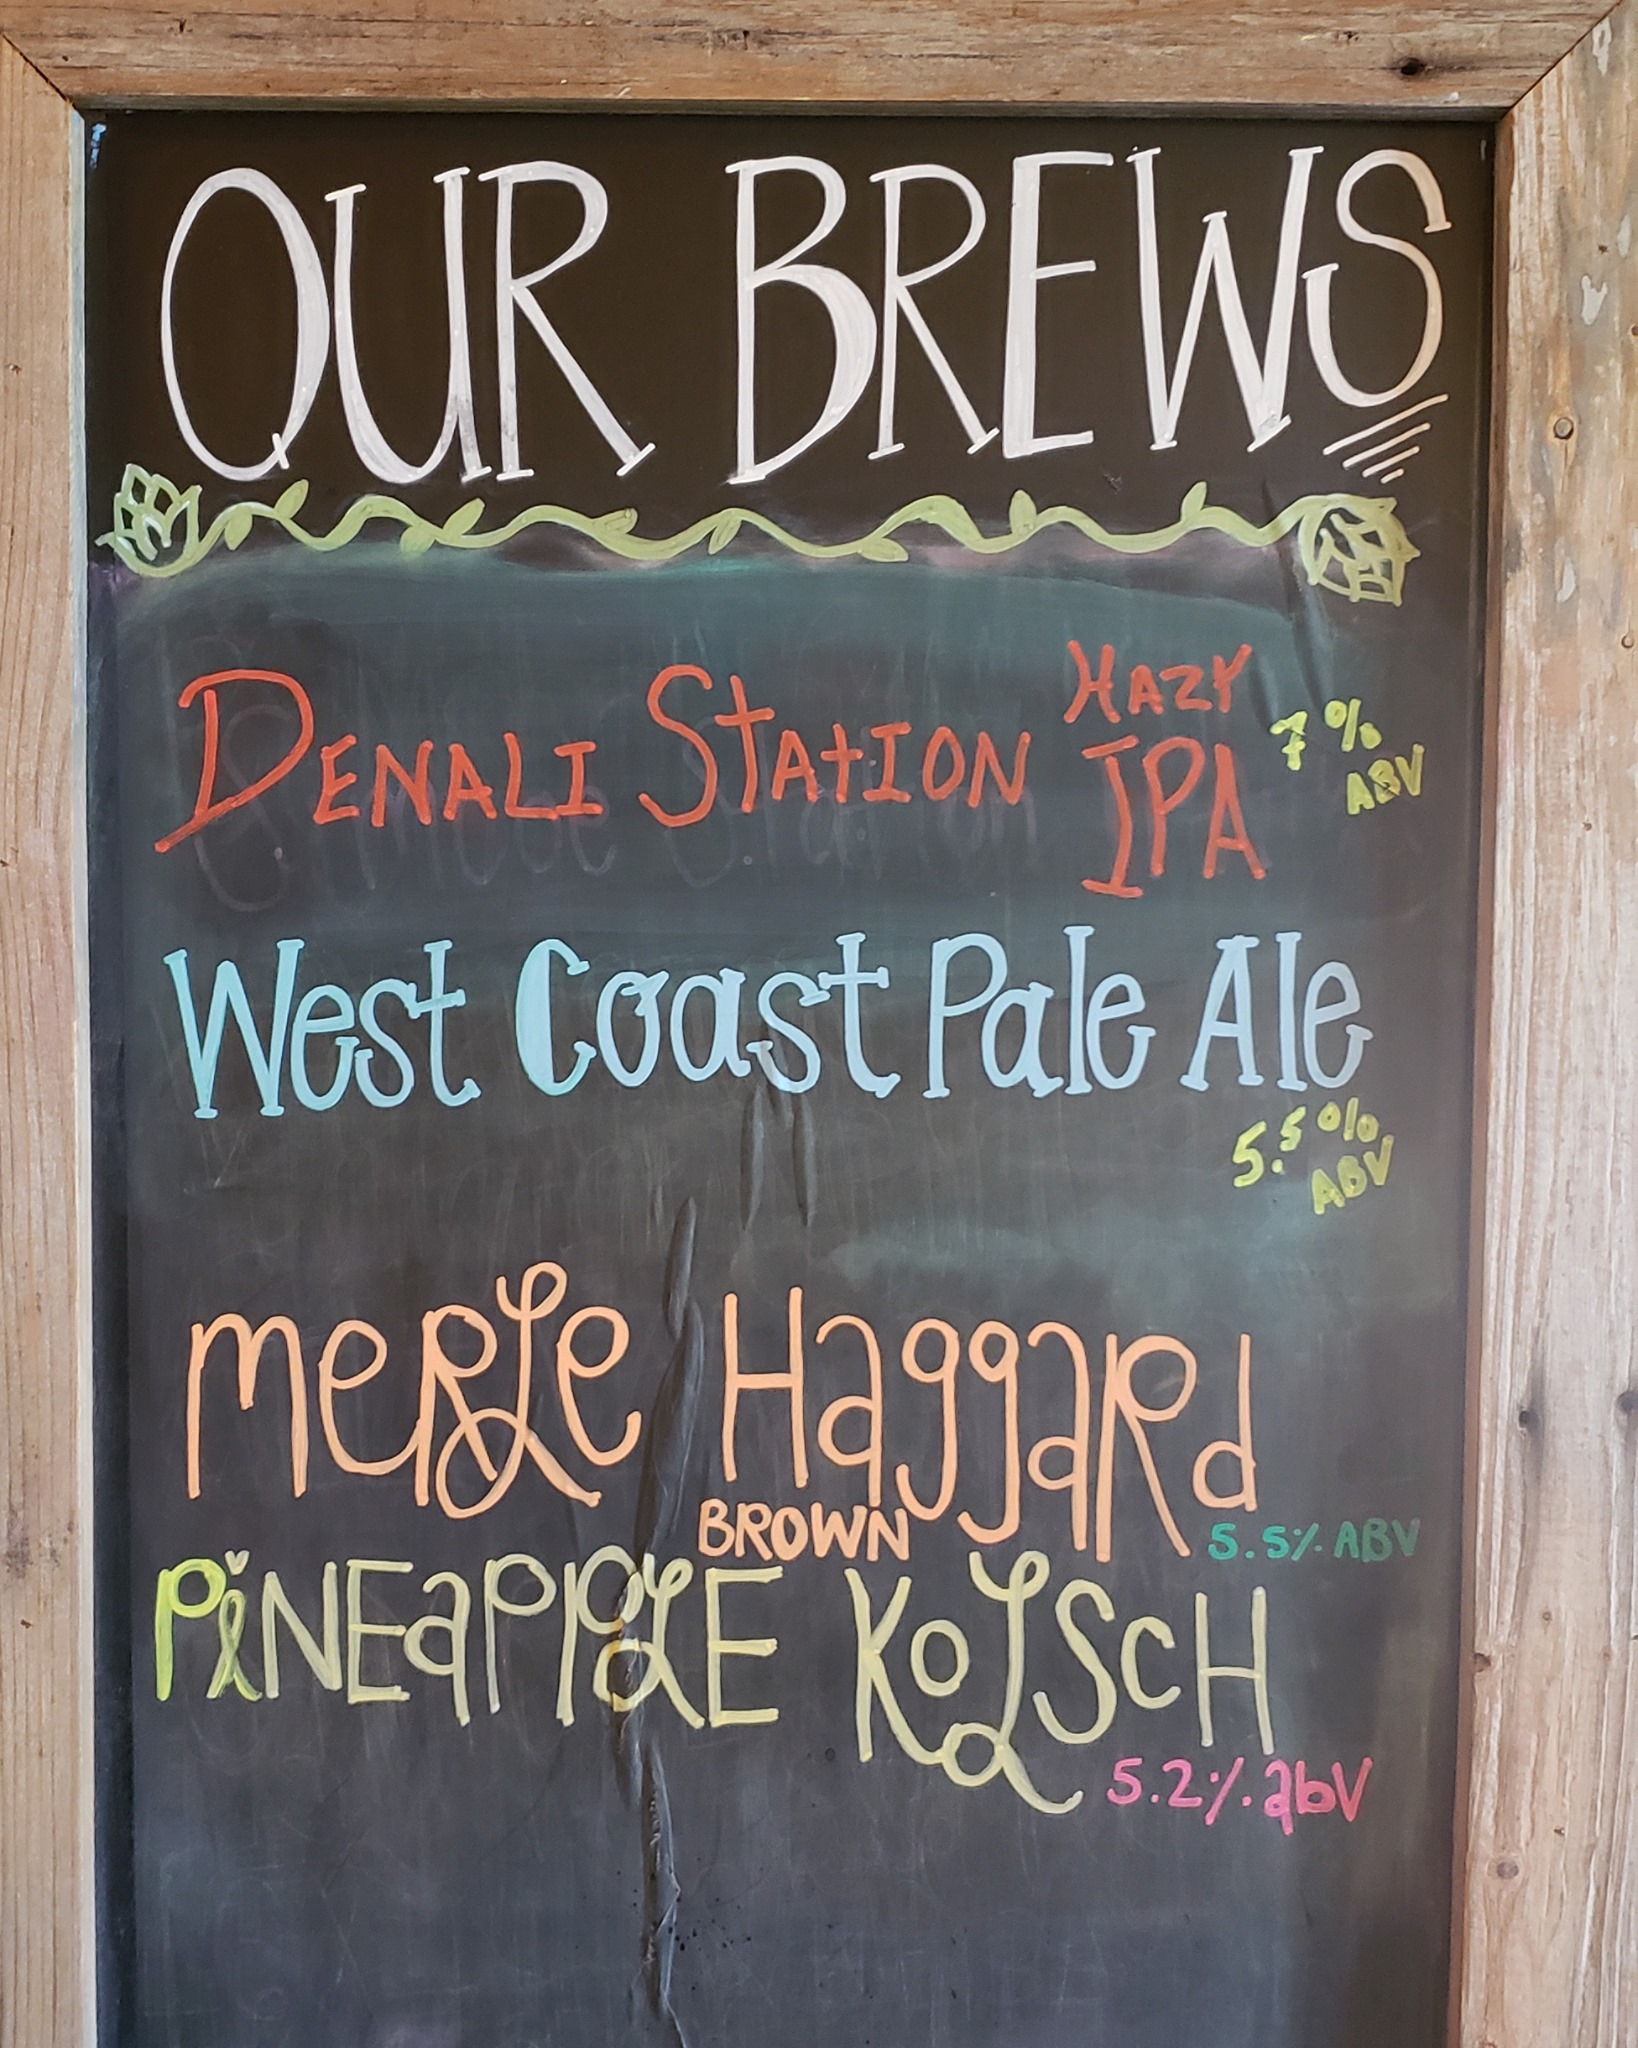 OUR BREWS
DENALI STATION HAZY IPA 7% ABV
West Coast Pale Ale
5.5% ABV
MeRLe HaggaRd
BROWN 5.5% ABV
PiNEaPPLE KOLScH
5.2% abV